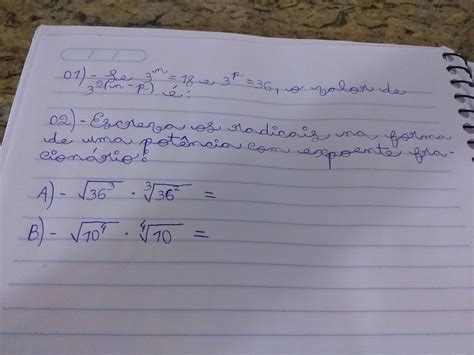 01)- Se 3^m = 18 e 3^p = 36, o valor de
3^2(m - p) é:
02)- Escreva os radicais na forma
de uma potência com expoente fra-
cionário:
A)- √36³ · ³√36² =
B)- √10⁴ · ⁴√10 =